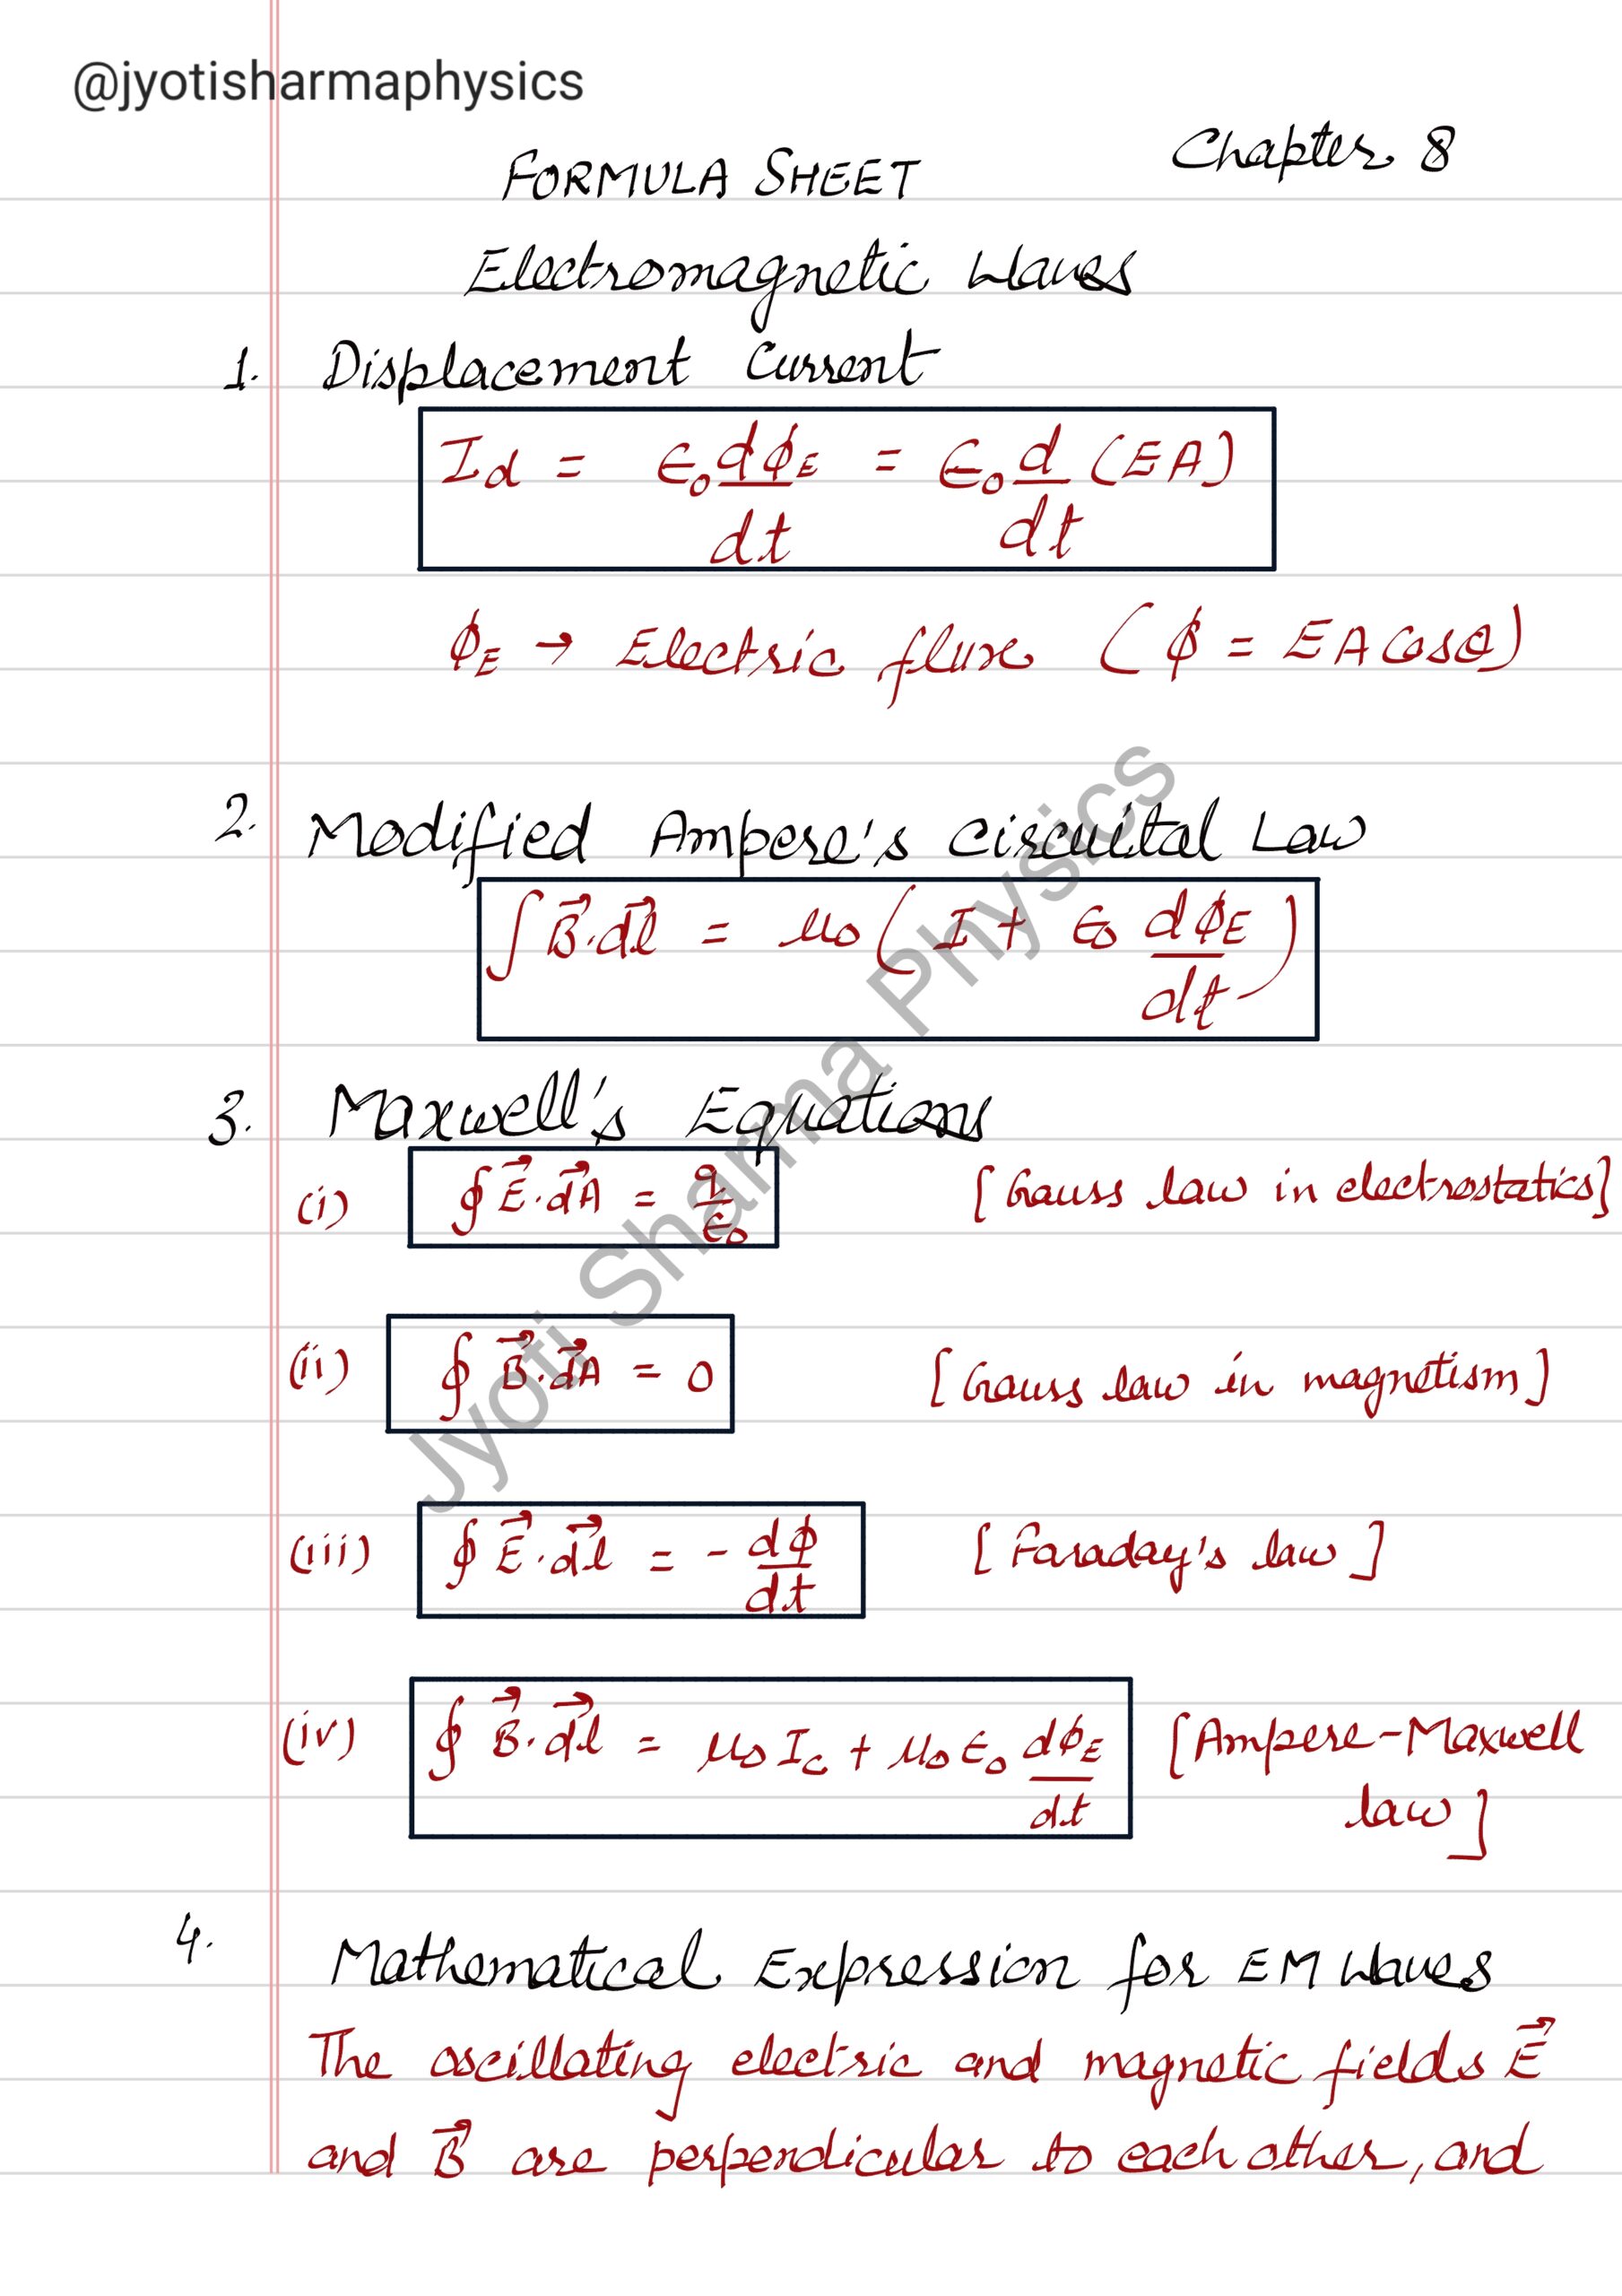 @jyotisharmaphysics
Chapter 8
FORMULA SHEET
Electromagnetic Waves
1. Displacement Current
I_d = ε₀ dϕ_E/dt = ε₀ d/dt (EA)
ϕ_E → Electric flux (ϕ = EA Cosθ)
2. Modified Ampere's Circuital Law
∫ B⃗.dl⃗ = μ₀ ( I + ε₀ dϕ_E/dt )
3. Maxwell's Equations
(i) ∮ E⃗.dA⃗ = q/ε₀ [Gauss law in electrostatics]
(ii) ∮ B⃗.dA⃗ = 0 [Gauss law in magnetism]
(iii) ∮ E⃗.dl⃗ = - dϕ/dt [Faraday's law]
(iv) ∮ B⃗.dl⃗ = μ₀ I_c + μ₀ ε₀ dϕ_E/dt [Ampere-Maxwell
law]
4. Mathematical Expression for EM Waves
The oscillating electric and magnetic fields E⃗
and B⃗ are perpendicular to each other, and
Jyoti Sharma Physics